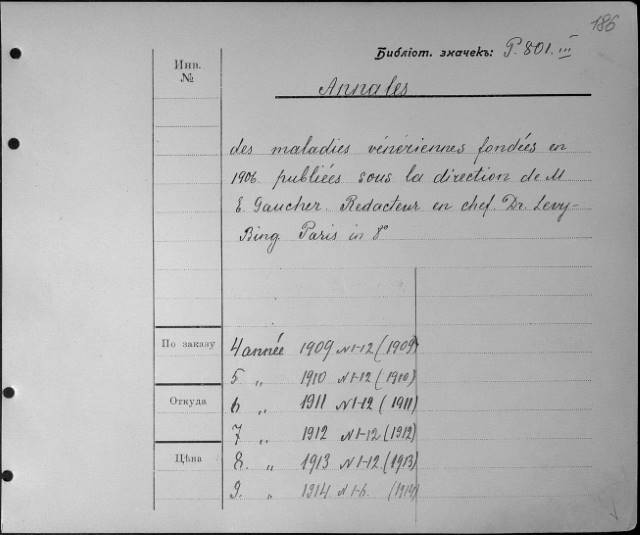 186
Библіот. значекъ: P. 801. III
Инв.
№
Annales
des maladies vénériennes fondées en
1906. publiées sous la direction de M
E. Gaucher. Redacteur en chef. Dr. Levy-
Bing Paris in 8°
По заказу
4 année 1909 N 1-12 (1909)
5 „ 1910 N 1-12 (1910)
Откуда
6 „ 1911 N 1-12 (1911)
7 „ 1912 N 1-12 (1912)
Цѣна
8. „ 1913 N 1-12. (1913)
9. „ 1914 N 1-6. (1914)